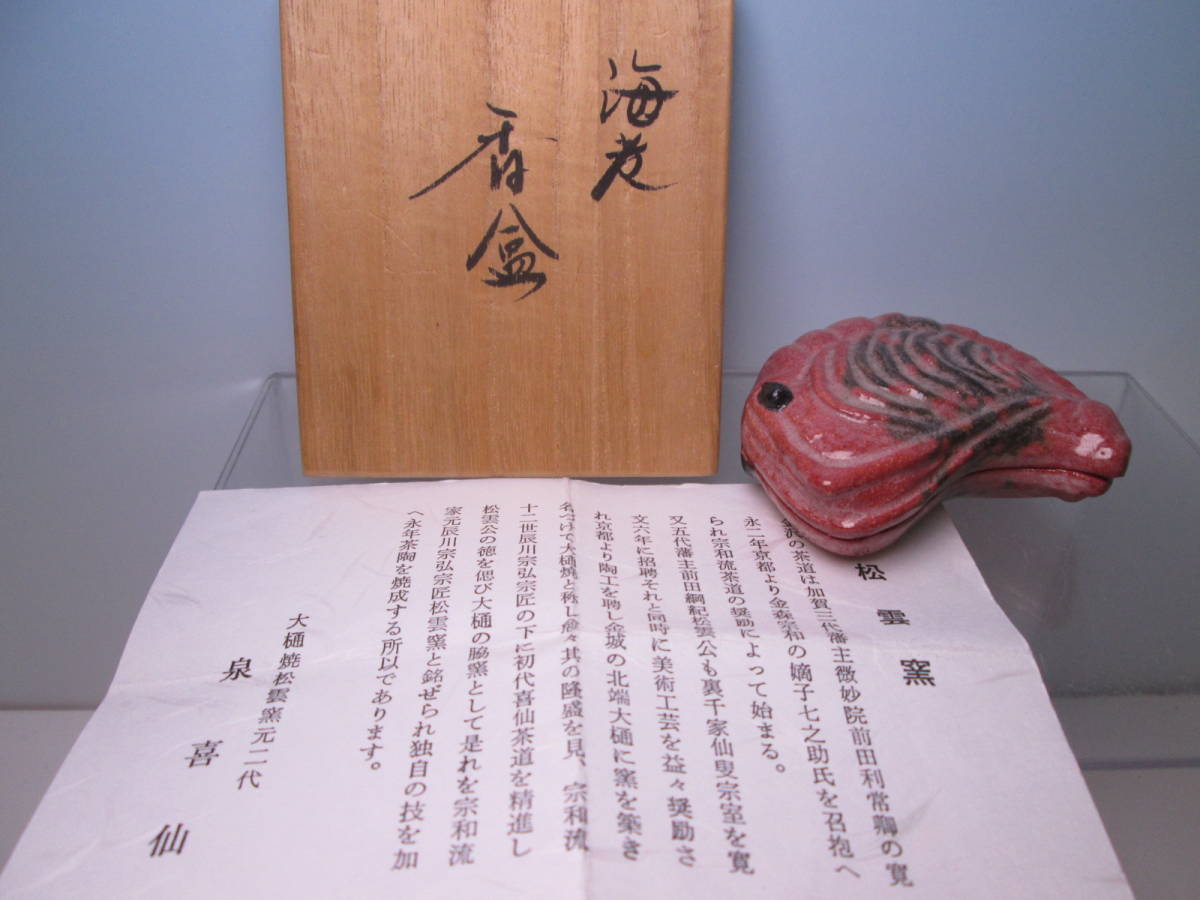 海老
香盒
松雲窯
金沢の茶道は加賀三代藩主微妙院前田利常卿の寛
永二年京都より金森宗和の嫡子七之助氏を召抱へ
られ宗和流茶道の奨励によって始まる。
又五代藩主前田綱紀松雲公も裏千家仙叟宗室を寛
文六年に招聘それと同時に美術工芸を益々奨励さ
れ京都より陶工を聘し金城の北端大樋に窯を築き
名づけて大樋焼と称し愈々其の隆盛を見、宗和流
十二世辰川宗弘宗匠の下に初代喜仙茶道を精進し
松雲公の徳を偲び大樋の脇窯として是れを宗和流
家元辰川宗弘宗匠松雲窯と銘ぜられ独自の技を加
へ永年茶陶を焼成する所以であります。
大樋焼松雲窯元二代
泉喜仙